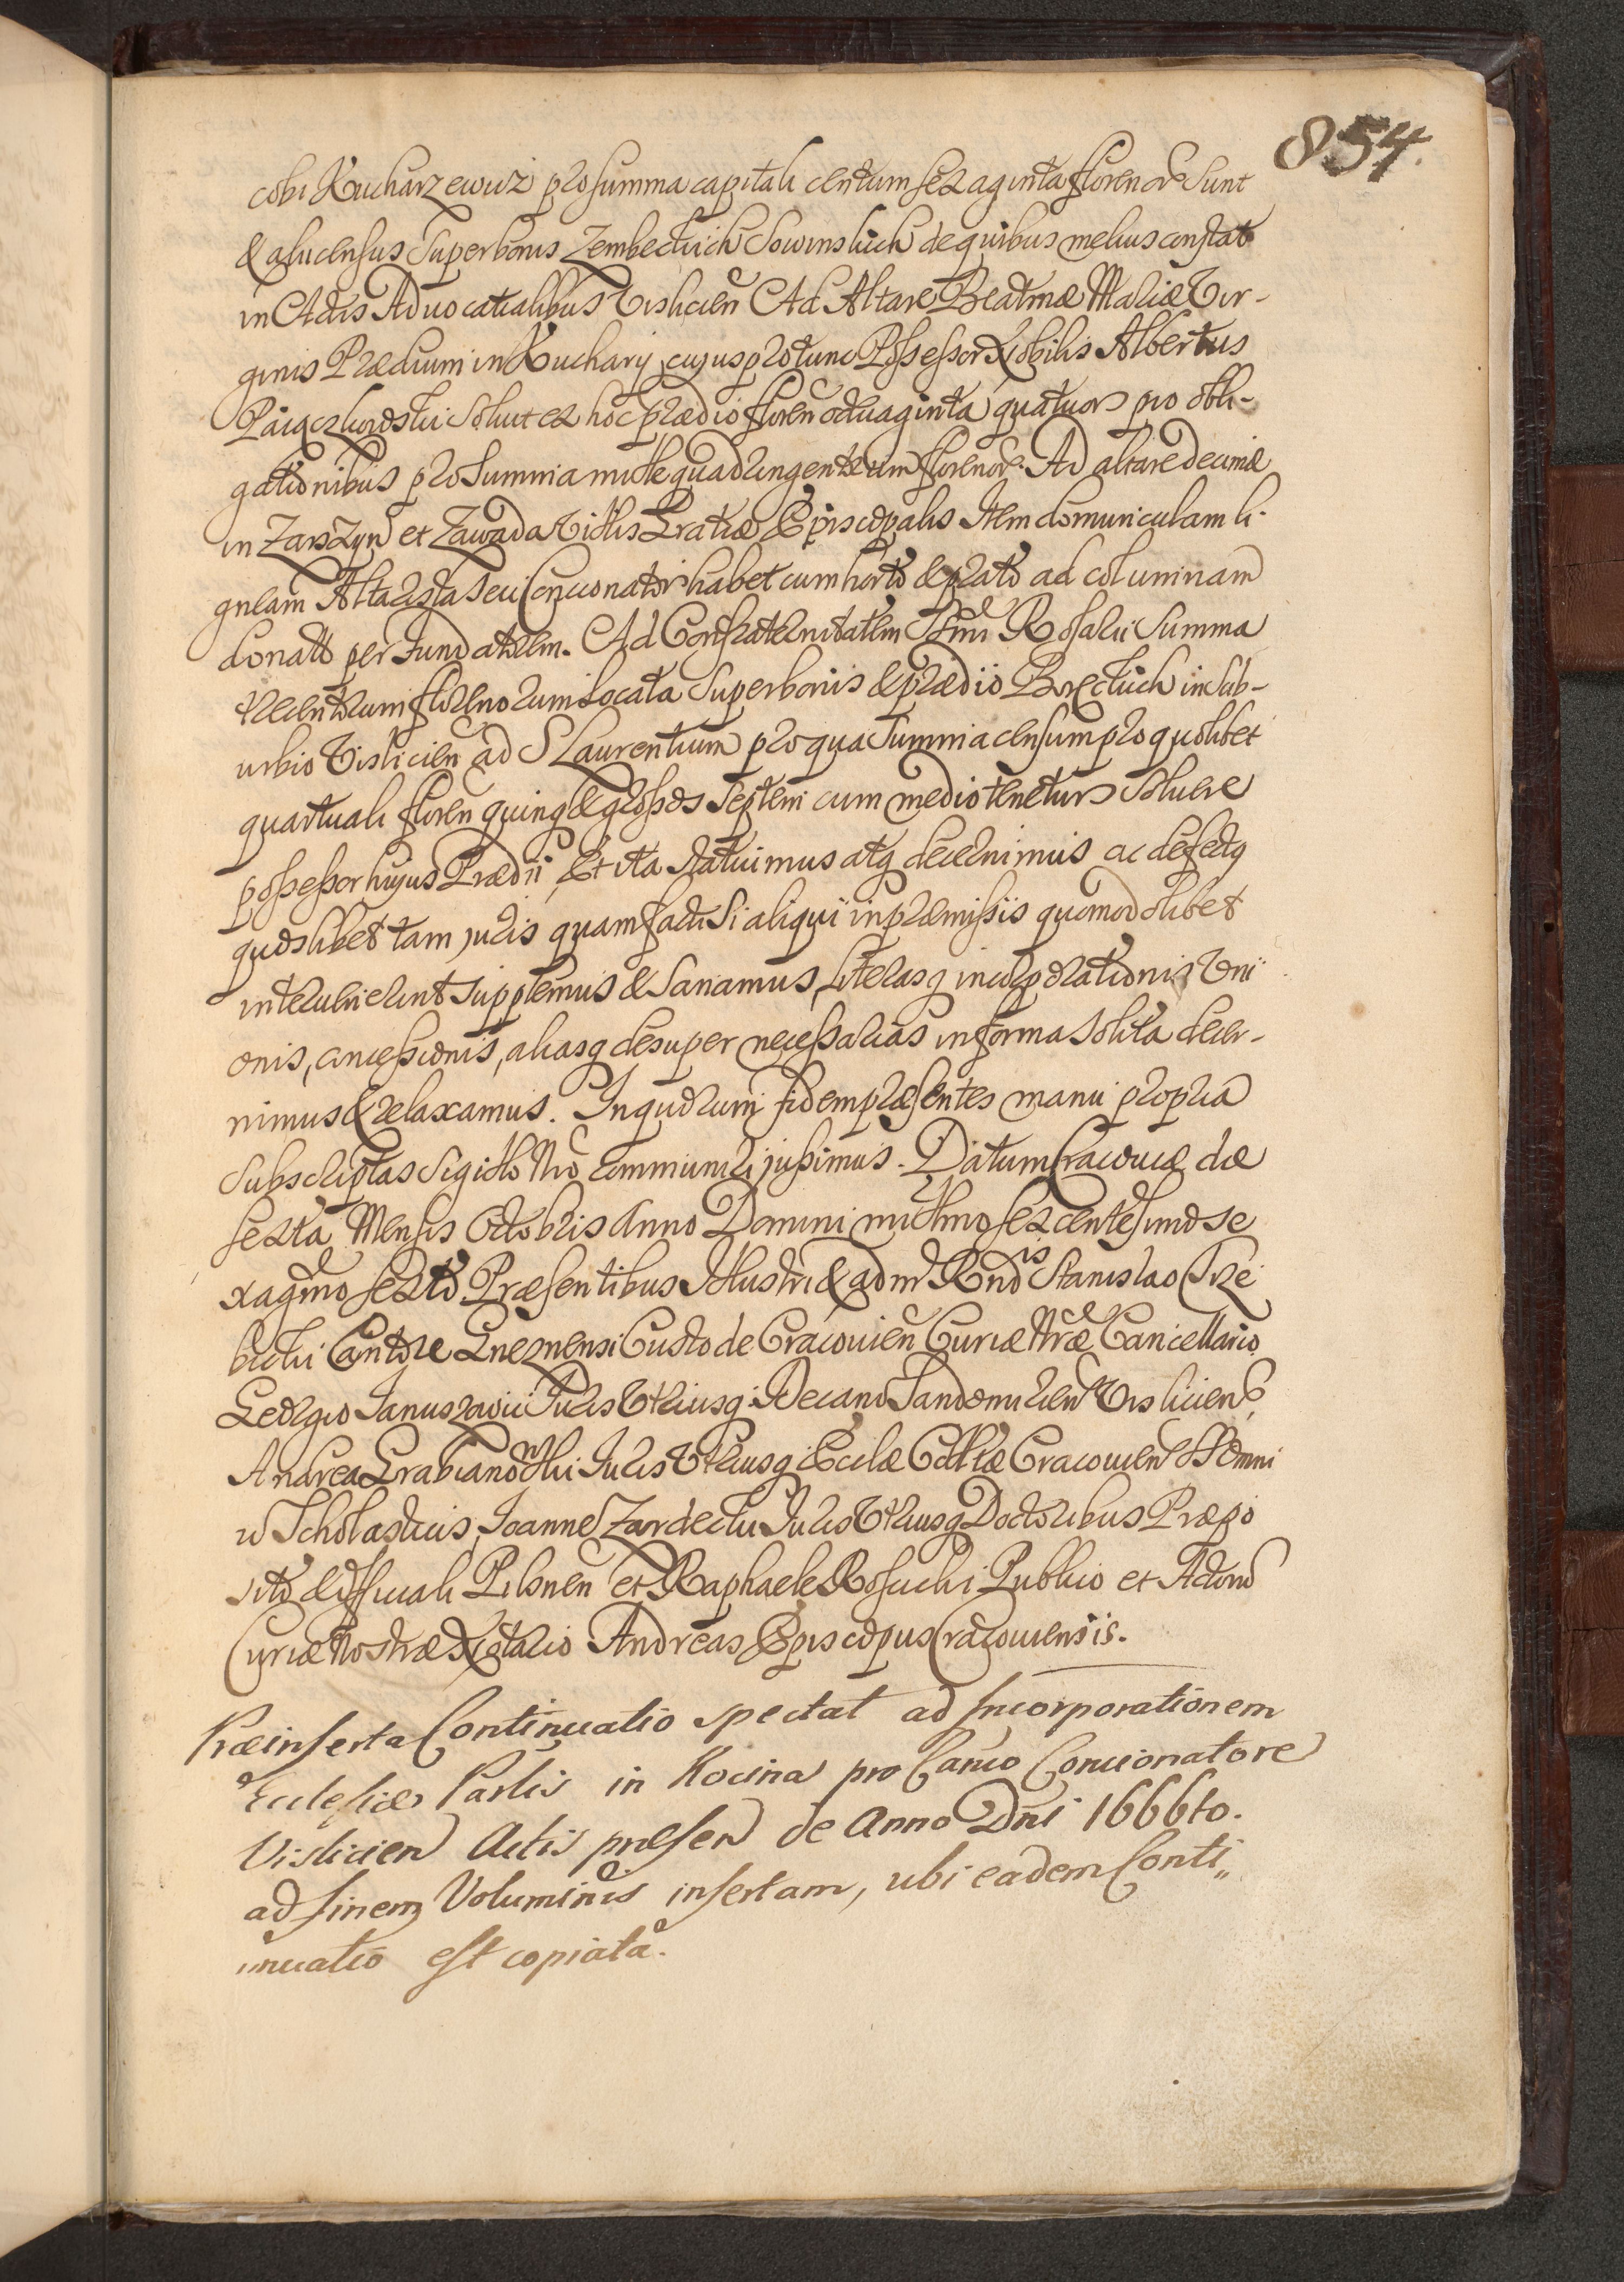 854.
cobi Kucharzewicz pro summa capitali centum sexaginta florenor Sunt
& alii census super bonis Zembeckich Sowinskich de quibus melius constat
in Actis Advocatialibus Vislicien Ad Altare Beatmæ Mariæ Vir-
ginis Prædium in Kuchary cujus pro tunc Possessor Nobilis Albertus
solvit ex hoc prædio floren octuaginta quatuor pro obli-
gationibus pro summa mille quadringentarum florenor. Ad altare decimæ
in Zarszyn et Zawada Villis Gratiæ Episcopalis Item domunculam li-
gneam Altarista seu Concionator habet cum horto & prato ad columnam
donato per Fundatorem. Ad Confraternitatem Ssmi Rosarii Summa
trecentorum florenorum locata super bonis & prædio Boreckich in sub-
urbio Vislicien ad S Laurentium pro qua summa censum pro quolibet
quartuali floren quinq & grossos septem cum medio tenetur solvere
possessor hujus Prædii, Et ita statuimus atq decernimus ac defectq
quoslibet tam juris quam facti si aliqui in præmissis quomodolibet
intervenerint supplemus & sanamus, Literasq incorporationis Uni
onis, concessionis, aliasq desuper necessarias in forma solita decer-
nimus & relaxamus. In quorum fidem præsentes manu propria
subscriptas sigillo Nro communiri jussimus. Datum Cracoviæ die
sexta Mensis Octobris Anno Domini millmo sexcentesimo se
xagmo sexto Præsentibus Illustri & admr Rndis Stanislao Crze
bicki Cantore Gneznensi Custode Cracovien Curiæ Nræ Cancellario
Georgio Januszowic Juris Utriusq Decano Sandomirien Visliciens,
Andrea Grabianowski Juris Utriusq Ecclæ Cracovien SSomni
u Scholasticis, Joanne Zardecki Juris Utriusq Doctoribus Præpo
sito & Officiali Pilsnen et Raphaele Publico et Actorum
Curiæ Nostræ Notario Andreas Episcopus Cracoviensis.
Præinserta Continuatio spectat ad Incorporationem
Ecclesiæ Partis in Kocina pro Canco Concionatore
Vislicien Actis præsen de Anno Dni 1666to.
ad finem Voluminis insertam, ubi eadem Conti„
nuatio est copiata.